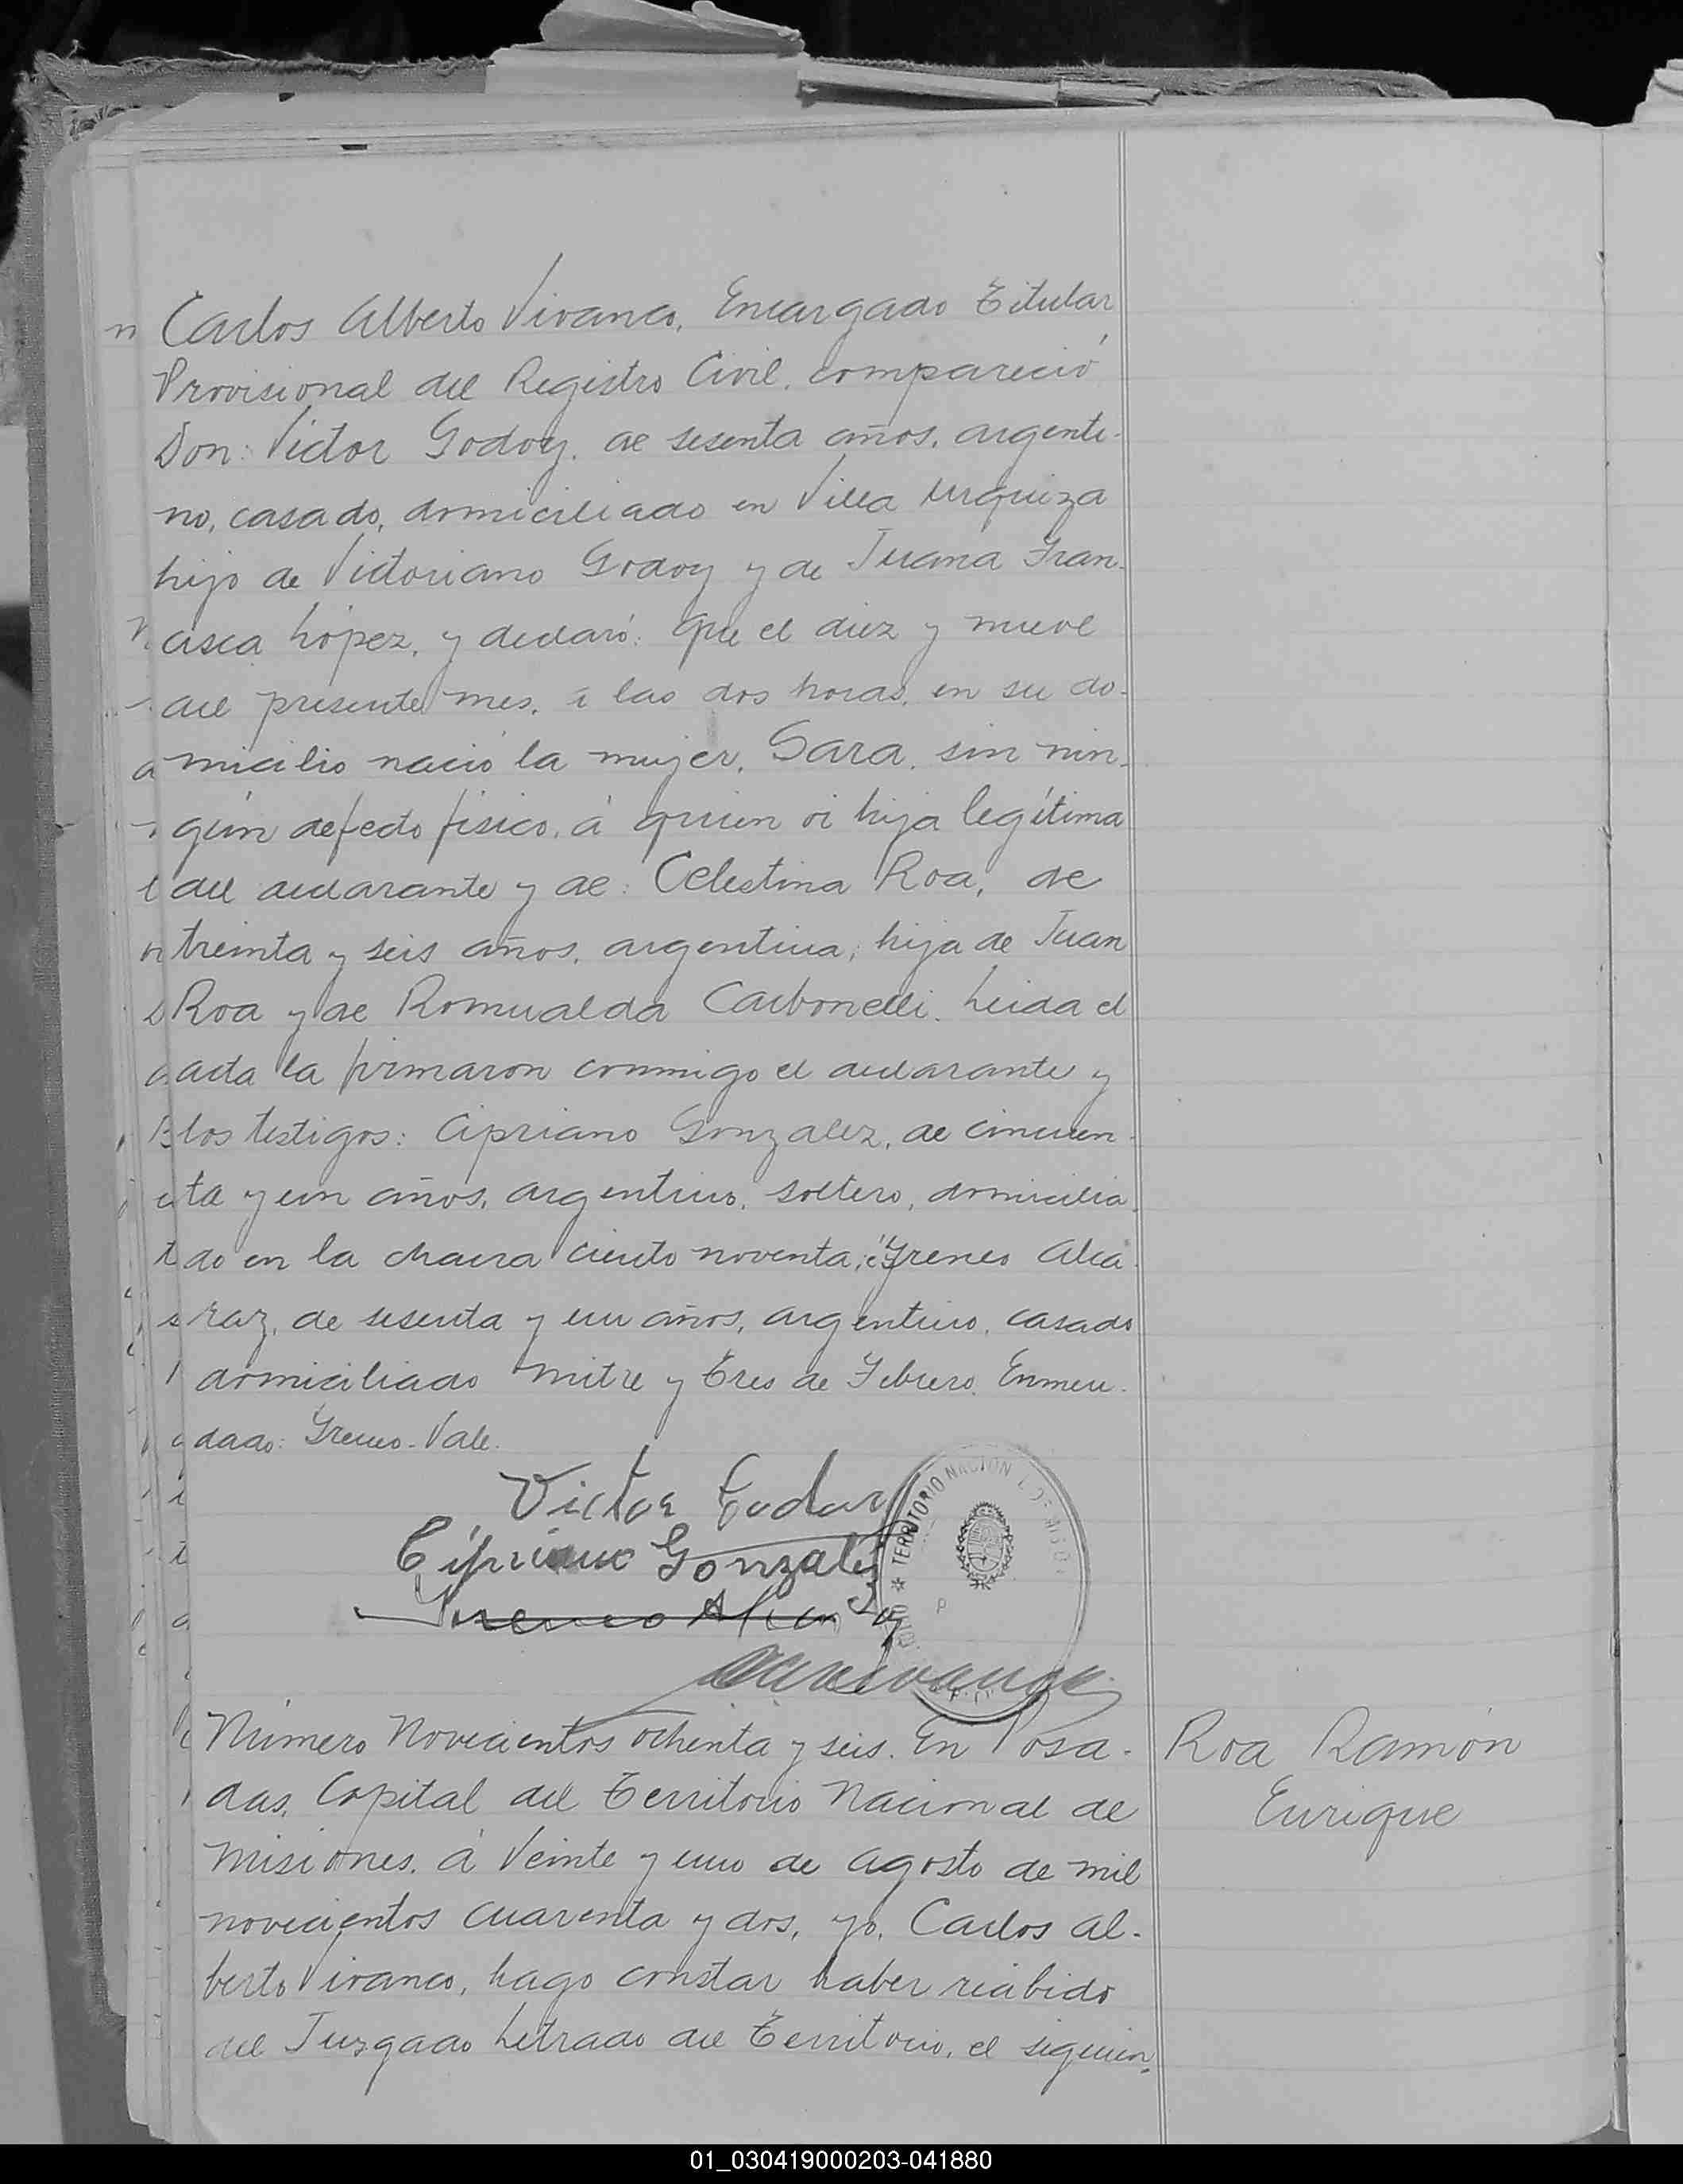 Carlos Alberto Vivanco, Encargado Titular
Provisional del Registro Civil, compareció
Don: Victor Godoy, de sesenta años, argenti-
no, casado, domiciliado en Villa Urquiza
hijo de Victoriano Godoy y de Juana Fran-
cisca López, y declaró: Que el diez y nueve
del presente mes, á las dos horas, en su do-
micilio nació la mujer, Sara, sin nin-
gún defecto físico, á quien vi hija legítima
del declarante y de: Celestina Roa, de
treinta y seis años, argentina, hija de Juan
Roa y de Romualda Carbonelli. Leida el
acta la firmaron conmigo el declarante y
los testigos: Cipriano Gonzalez, de cincuen-
ta y un años, argentino, soltero, domicilia-
do en la chacra ciento noventa; é Yreneo Alca-
raz, de sesenta y un años, argentino, casado
domiciliado Mitre y Tres de Febrero. Enmen-
dado: Yreneo-Vale.
Victor Godoy
Cipriano Gonzalez
TERRITORIO NACION
Número Novecientos ochenta y seis. En Posa-
das, Capital del Territorio Nacional de
Misiones, á Veinte y uno de Agosto de mil
novecientos cuarenta y dos, yo, Carlos Al-
berto Vivanco, hago constar haber recibido
del Juzgado Letrado del Territorio, el siguien-
Roa Ramón
Enrique
01_030419000203-041880